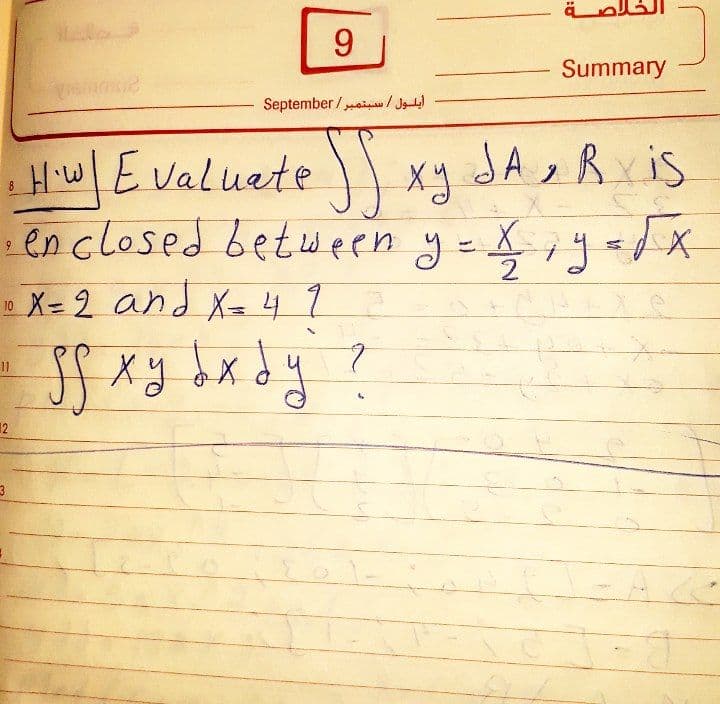 الخلاصة
9
Summary
September / أيلول / سبتمبر
8 H.W| Evaluate ∬ xy dA, R is
9 enclosed between y = x/2, y = √x
10 x=2 and x=4 ?
11 ∬ xy dx dy ?
12
3